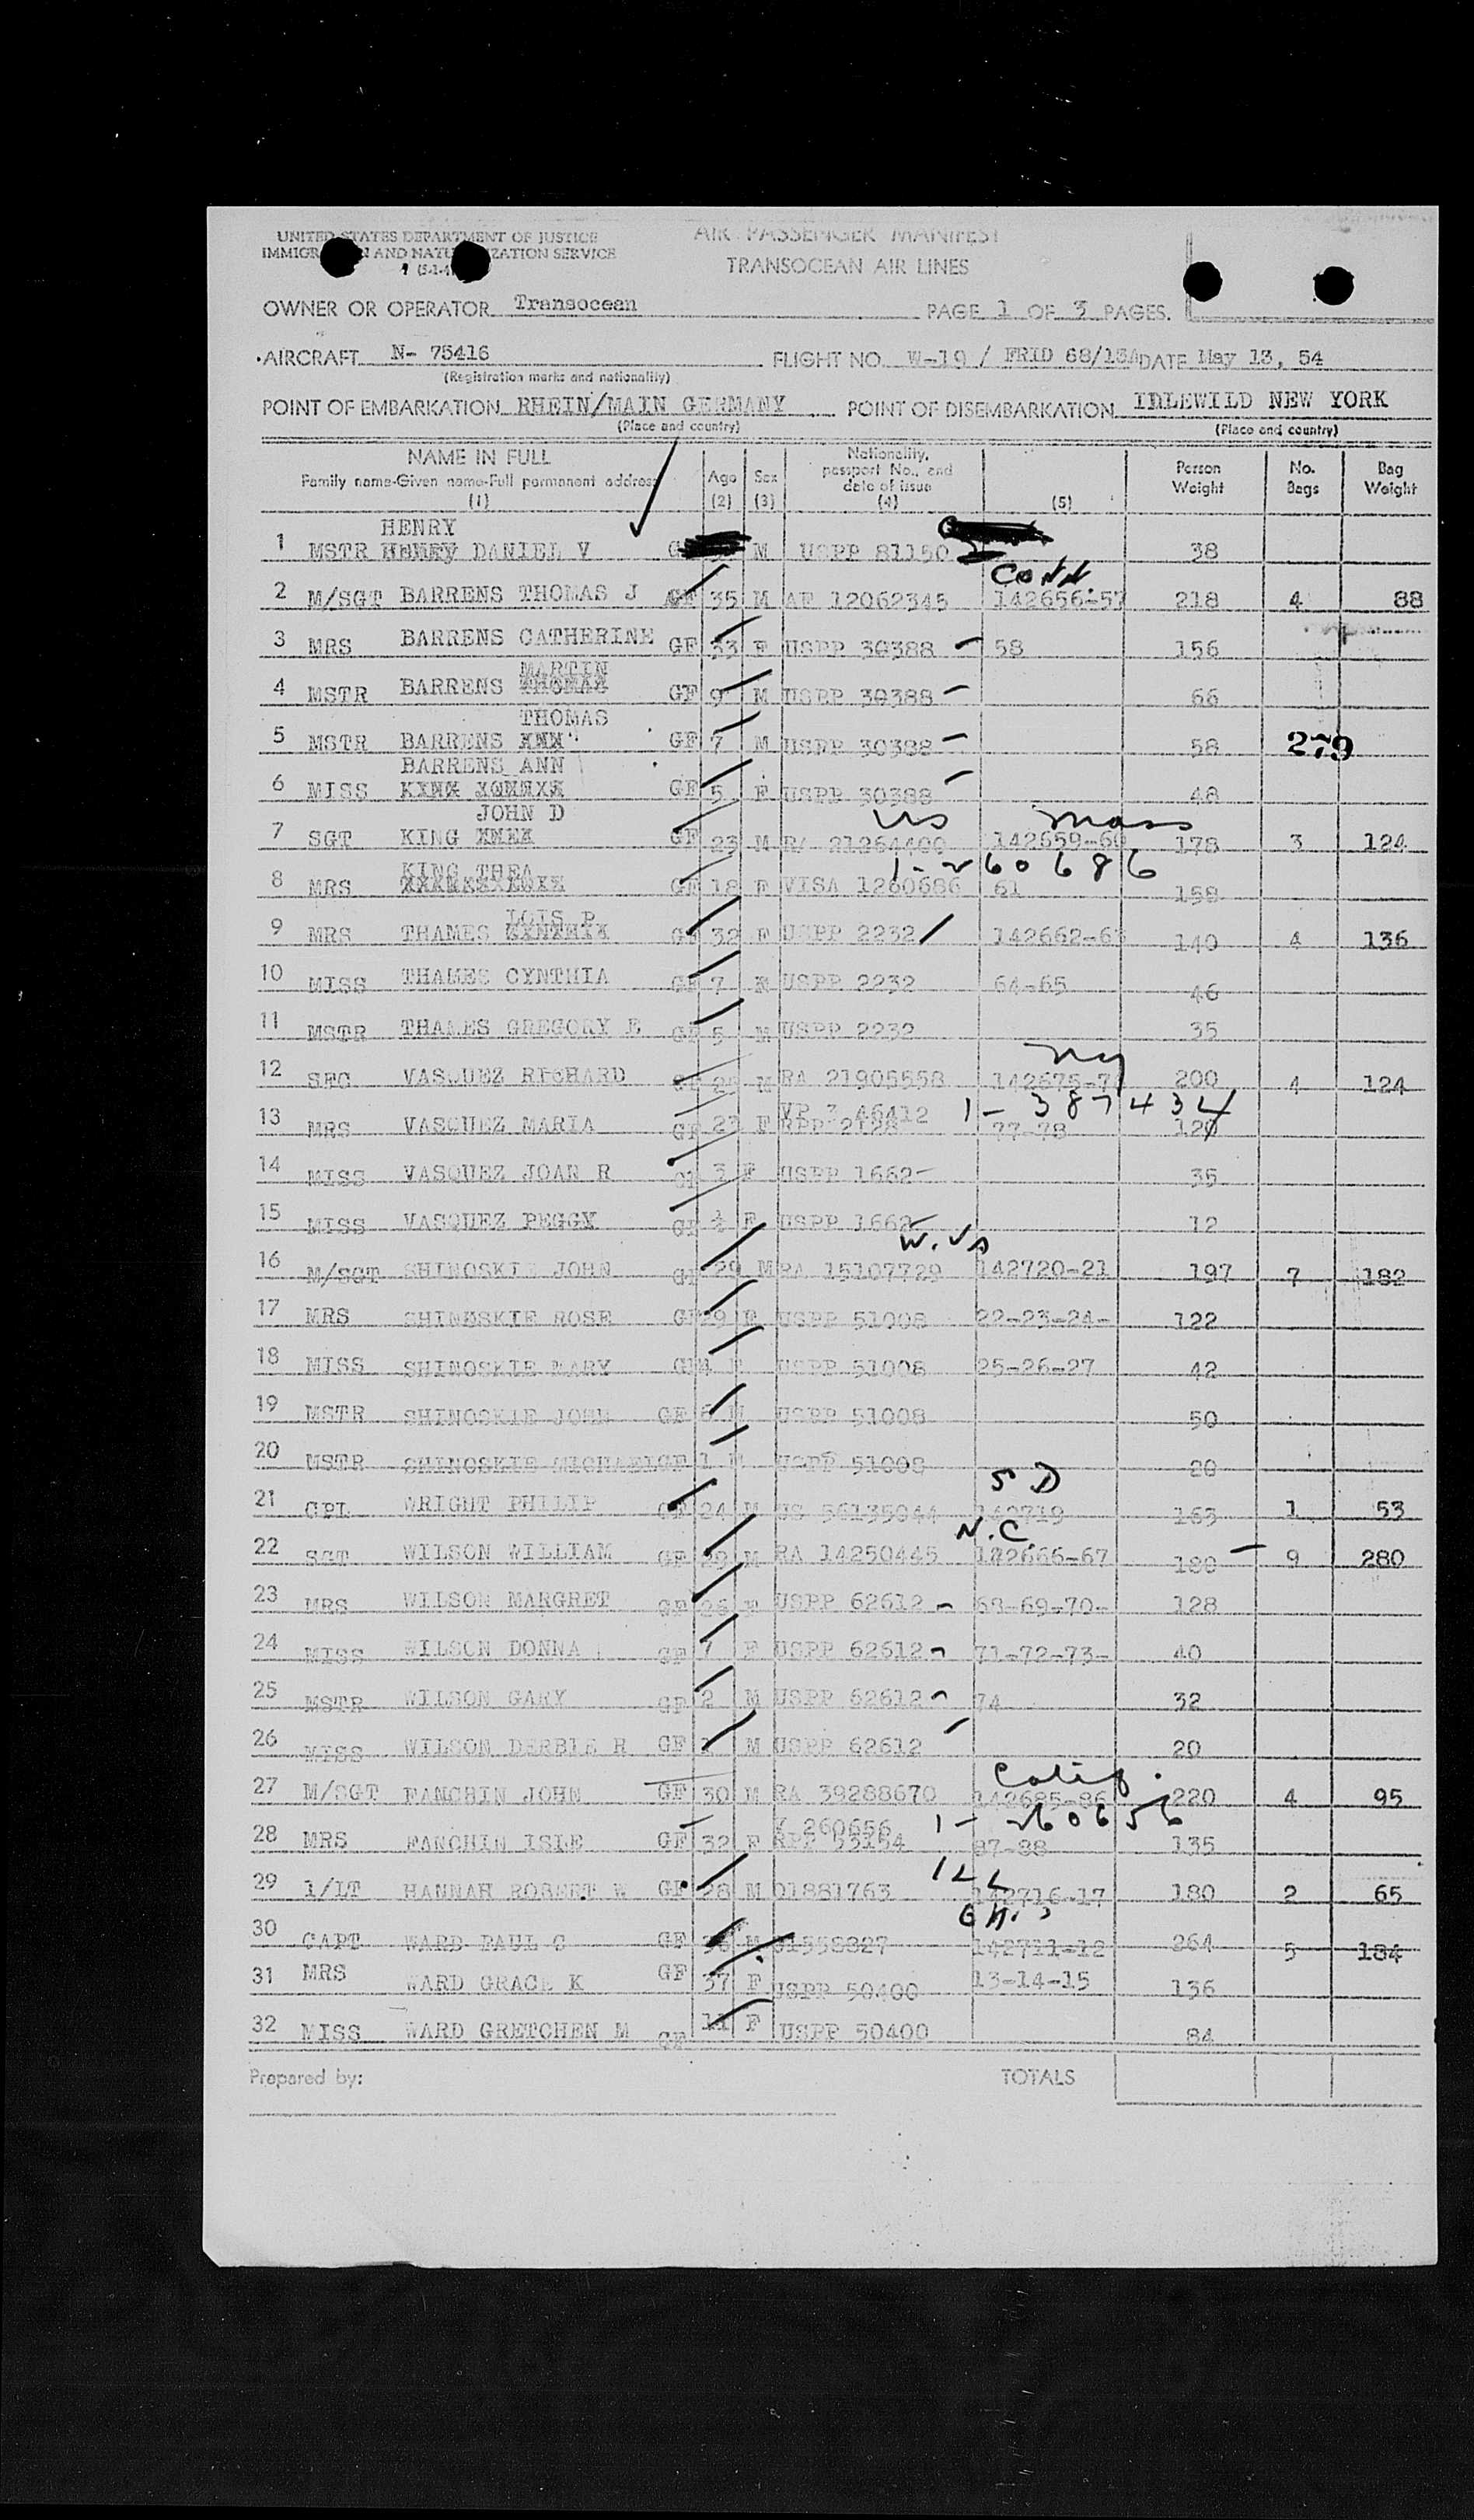 UNITED STATES DEPARTMENT OF JUSTICE
AIR PASSENGER MANIFEST
IMMIGR AND NATU IZATION SERVICE
TRANSOCEAN AIR LINES
OWNER OR OPERATOR Transocean PAGE 1 OF 3 PAGES.
AIRCRAFT N- 75416 FLIGHT NO. W-19 / FRID 68/13A DATE May 13, 54
(Registration marks and nationality)
POINT OF EMBARKATION RHEIN/MAIN GERMANY POINT OF DISEMBARKATION IDLEWILD NEW YORK
(Place and country) (Place and country)
NAME IN FULL Age Sex Nationality, passport No., and date of issue Person Weight No. Bags Bag Weight
Family name-Given name-Full permanent address
(1) (2) (3) (4) (5)
HENRY
1 MSTR HENRY DANIEL V M USPP 81150 38
CONN.
2 M/SGT BARRENS THOMAS J GF 35 M AF 12062345 142656-57 218 4 88
3 MRS BARRENS CATHERINE GF 33 F USPP 30388 58 156
MARTIN
4 MSTR BARRENS GF 9 M USPP 30388 66
THOMAS
5 MSTR BARRENS GF 7 M USPP 30388 58 279
BARRENS ANN
6 MISS GF 5 F USPP 30388 48
JOHN D US Mass
7 SGT KING GF 23 M RA 21264400 142659-60 178 3 124
KING THEA 1-260686
8 MRS GF 18 F VISA 1260686 61 158
LOIS P
9 MRS THAMES CYNTHIA GF 32 F USPP 2232 142662-63 140 4 136
10 MISS THAMES CYNTHIA GF 7 F USPP 2232 64-65 46
11 MSTR THAMES GREGORY E GF 5 M USPP 2232 35
NY
12 SFC VASQUEZ RICHARD GF M RA 21905558 142675-76 200 4 124
VP 3 46412 1-387434
13 MRS VASQUEZ MARIA GF 23 F RPP 2128 77-78 120
14 MISS VASQUEZ JOAN R GF 3 F USPP 1662 35
15 MISS VASQUEZ PEGGY GF ½ F USPP 1662 12
W. Va
16 M/SGT SHINOSKIE JOHN GF 29 M RA 15107729 142720-21 197 7 182
17 MRS SHINOSKIE ROSE GF 29 F USPP 51008 22-23-24- 122
18 MISS SHINOSKIE MARY GF 4 F USPP 51008 25-26-27 42
19 MSTR SHINOSKIE JOHN GF 6 M USPP 51008 50
20 MSTR SHINOSKIE MICHAEL GF 1 M USPP 51008 20
S D
21 CPL WRIGHT PHILIP GF 24 M US 56135044 142719 163 1 53
N.C.
22 SGT WILSON WILLIAM GF 29 M RA 14250445 142666-67 180 9 280
23 MRS WILSON MARGRET GF 26 F USPP 62612 68-69-70- 128
24 MISS WILSON DONNA GF 7 F USPP 62612 71-72-73- 40
25 MSTR WILSON GARY GF 2 M USPP 62612 74 32
26 MISS WILSON DEBBIE R GF M USPP 62612 20
Calif.
27 M/SGT FANCHIN JOHN GF 30 M RA 39288670 142685-86 220 4 95
K 260656 1-260656
28 MRS FANCHIN ISLE GF 32 F RPP 53154 87-88 135
ILL
29 1/LT HANNAH ROBERT W GF 28 M 01881763 142716-17 180 2 65
30 CAPT WARD PAUL C GF M 01558827 142711-12 264 5 184
31 MRS WARD GRACE K GF 37 F USPP 50400 13-14-15 136
32 MISS WARD GRETCHEN M GF 11 F USPP 50400 84
Prepared by: TOTALS